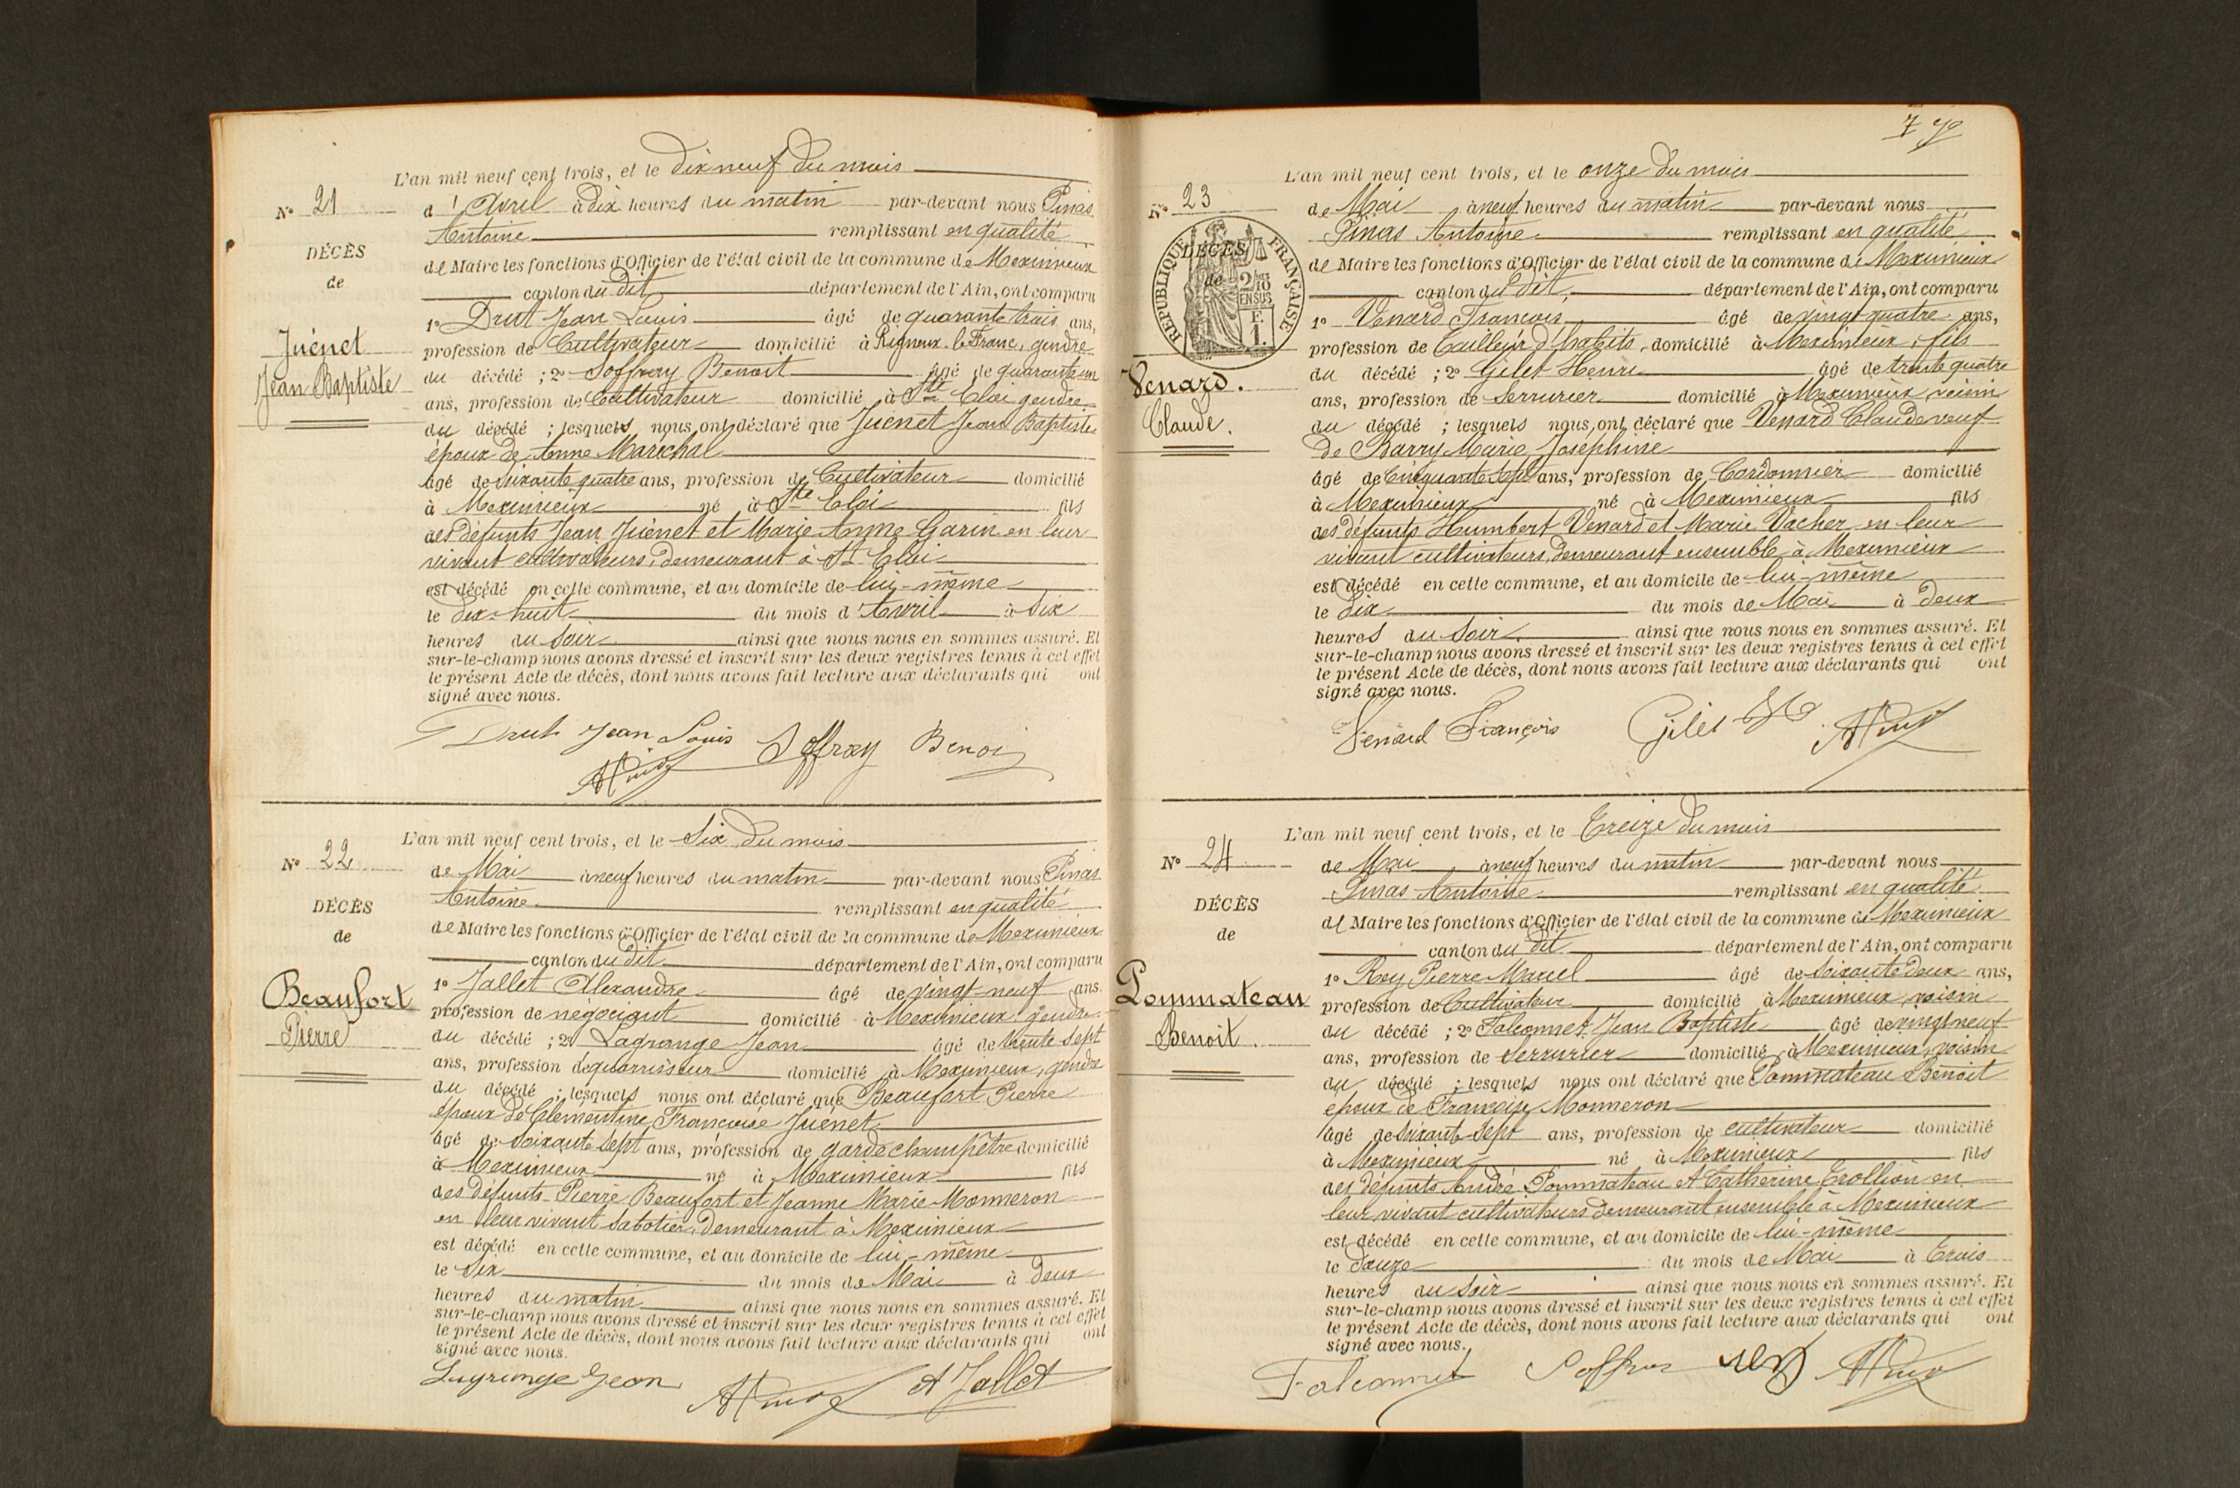 L'an mil neuf cent trois, et le dix neuf du mois
N° 21
d'Avril à dix heures du matin par-devant nous Pinas
Antoine remplissant en qualité
DÉCÈS
de Maire les fonctions d'Officier de l'état civil de la commune de Meximieux
de
canton du dit département de l'Ain, ont comparu
1° Drut Jean Louis âgé de quarante trois ans,
Juénet
profession de Cultivateur domicilié à Rigneux-le-Franc, gendre
Jean Baptiste
du décédé ; 2° Soffray Benoit âgé de quarante un
ans, profession de Cultivateur domicilié à Ste Eloi gendre
du décédé ; lesquels nous ont déclaré que Juénet Jean Baptiste
époux de Anne Maréchal
âgé de soixante quatre ans, profession de Cultivateur domicilié
à Meximieux né à Ste Eloi fils
des défunts Jean Juénet et Marie Anne Garin en leur
vivant cultivateurs, demeurant à St Eloi
est décédé en cette commune, et au domicile de lui-même
le dix-huit du mois d'Avril à dix
heures du soir ainsi que nous nous en sommes assuré. Et
sur-le-champ nous avons dressé et inscrit sur les deux registres tenus à cet effet
le présent Acte de décès, dont nous avons fait lecture aux déclarants qui ont
signé avec nous.
Drut Jean Louis Soffray Benoi
L'an mil neuf cent trois, et le Six du mois
N° 22
de Mai à neuf heures du matin par-devant nous Pinas
Antoine remplissant en qualité
DÉCÈS
de Maire les fonctions d'Officier de l'état civil de la commune de Meximieux
de
canton du dit département de l'Ain, ont comparu
1° Jallet Alexandre âgé de vingt-neuf ans
Beaufort
profession de négociant domicilié à Meximieux gendre
Pierre
du décédé ; 2° Lagrange Jean âgé de trente sept
ans, profession d'équarrisseur domicilié à Meximieux, gendre
du décédé ; lesquels nous ont déclaré que Beaufort Pierre
époux de Clémentine Françoise Juénet
âgé de soixante sept ans, profession de garde champêtre domicilié
à Meximieux né à Meximieux fils
des défunts Pierre Beaufort et Jeanne Marie Monneron
en leur vivant sabotier, demeurant à Meximieux
est décédé en cette commune, et au domicile de lui-même
le six du mois de Mai à deux
heures du matin ainsi que nous nous en sommes assuré. Et
sur-le-champ nous avons dressé et inscrit sur les deux registres tenus à cet effet
le présent Acte de décès, dont nous avons fait lecture aux déclarants qui ont
signé avec nous.
Lagrange Jean A Jallet
L'an mil neuf cent trois, et le onze du mois
N° 23
de Mai à neuf heures du matin par-devant nous
Pinas Antoine remplissant en qualité
DÉCÈS
RÉPUBLIQUE FRANÇAISE
de Maire les fonctions d'Officier de l'état civil de la commune de Meximieux
de
2/10 EN SUS
F. 1.
canton du dit, département de l'Ain, ont comparu
1° Venard François âgé de vingt quatre ans,
profession de Tailleur d'habits, domicilié à Meximieux, fils
Venard.
du décédé ; 2° Gilet Henri âgé de trente quatre
ans, profession de serrurier domicilié à Meximieux voisin
Claude.
du décédé ; lesquels nous ont déclaré que Venard Claude veuf
de Barry Marie Josephine
âgé de Cinquante sept ans, profession de Cordonnier domicilié
à Meximieux né à Meximieux fils
des défunts Humbert Venard et Marie Vacher en leur
vivant cultivateurs, demeurant ensemble à Meximieux
est décédé en cette commune, et au domicile de lui-même
le dix du mois de Mai à deux
heures du soir ainsi que nous nous en sommes assuré. Et
sur-le-champ nous avons dressé et inscrit sur les deux registres tenus à cet effet
le présent Acte de décès, dont nous avons fait lecture aux déclarants qui ont
signé avec nous.
Venard François Gilet
L'an mil neuf cent trois, et le Treize du mois
N° 24
de Mai à neuf heures du matin par-devant nous
Pinas Antoine remplissant en qualité
DÉCÈS
de Maire les fonctions d'Officier de l'état civil de la commune de Meximieux
de
canton du dit département de l'Ain, ont comparu
1° Rey Pierre Marcel âgé de soixante deux ans,
Pommateau
profession de Cultivateur domicilié à Meximieux, voisin
Benoit.
du décédé ; 2° Falconnet Jean Baptiste âgé de vingt neuf
ans, profession de Serrurier domicilié à Meximieux, voisin
du décédé ; lesquels nous ont déclaré que Pommateau Benoit
époux de Françoise Monneron
âgé de soixante-sept ans, profession de cultivateur domicilié
à Meximieux né à Meximieux fils
des défunts André Pommateau et Catherine Trollion en
leur vivant cultivateurs demeurant ensemble à Meximieux
est décédé en cette commune, et au domicile de lui-même
le douze du mois de Mai à trois
heures du soir ainsi que nous nous en sommes assuré. Et
sur-le-champ nous avons dressé et inscrit sur les deux registres tenus à cet effet
le présent Acte de décès, dont nous avons fait lecture aux déclarants qui ont
signé avec nous.
Falconnet